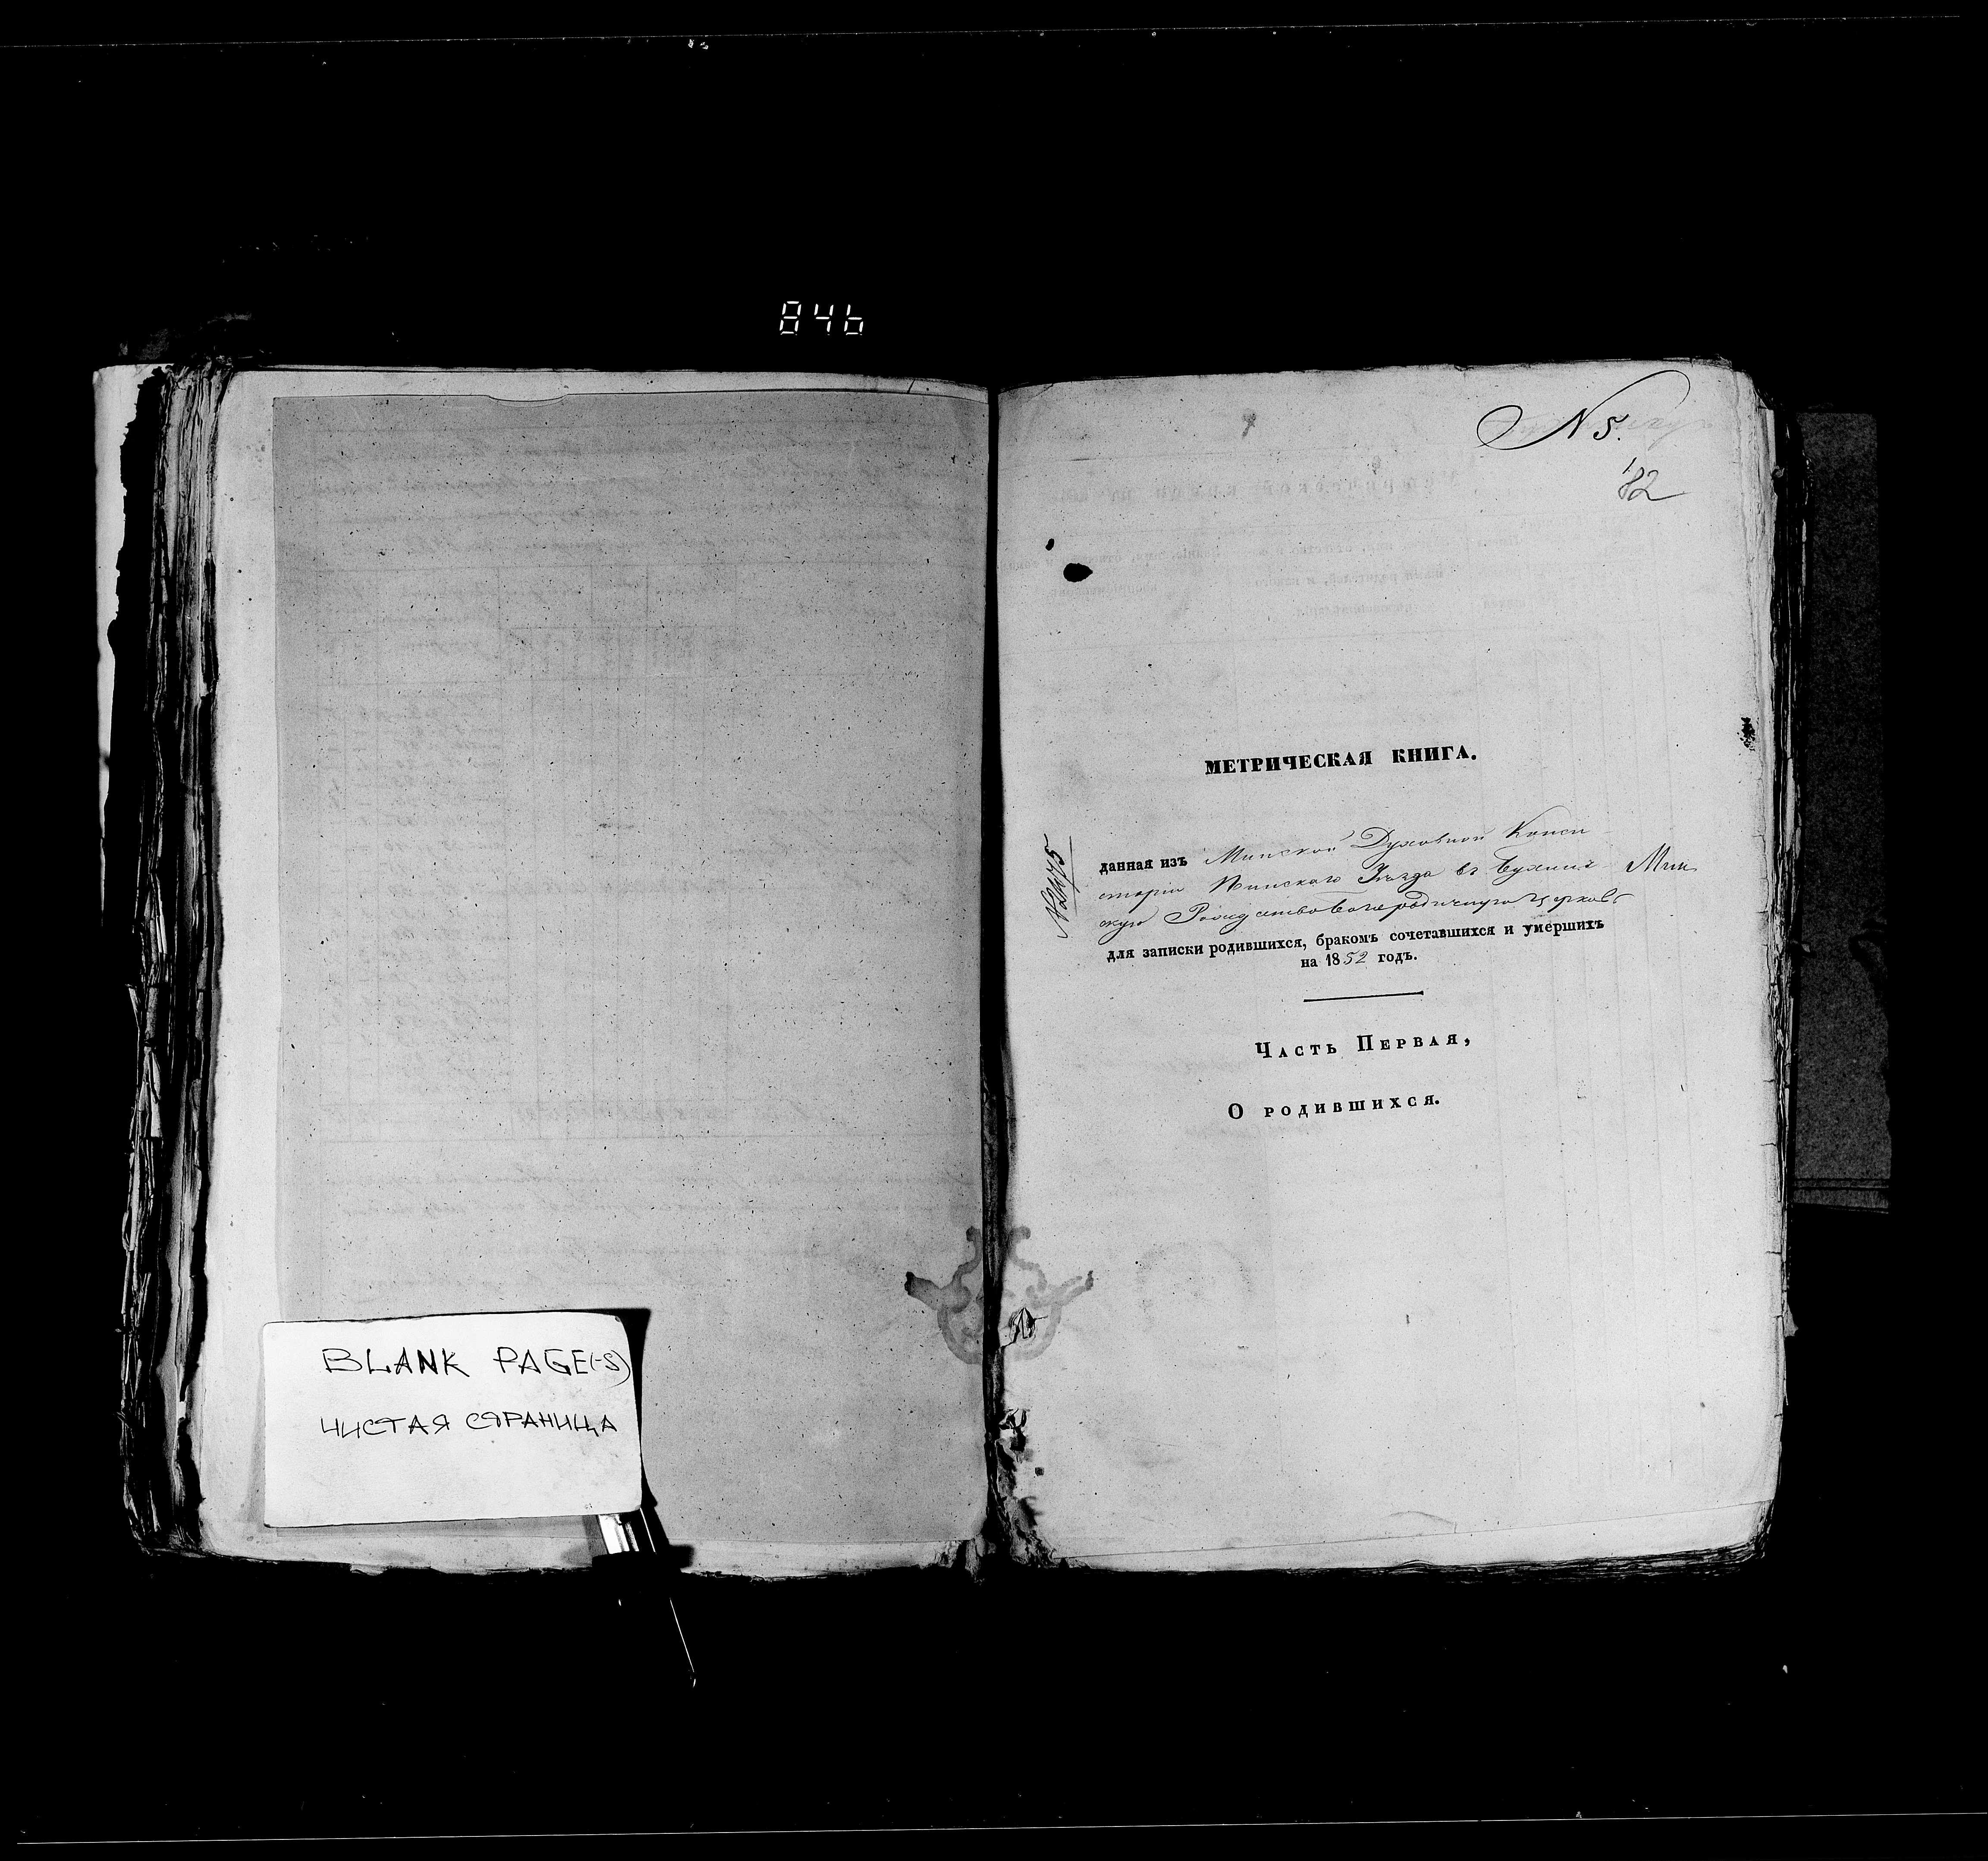 846
BLANK PAGE(-S)
ЧИСТАЯ СТРАНИЦА
N 5.
182
МЕТРИЧЕСКАЯ КНИГА.
данная изъ Минской Духовной Конси-
сторіи Пинскаго Уѣзда въ Мин
скую Рождествобогородичную церковь
для записки родившихся, бракомъ сочетавшихся и умершихъ
на 1852 годъ.
Часть Первая,
О родившихся.